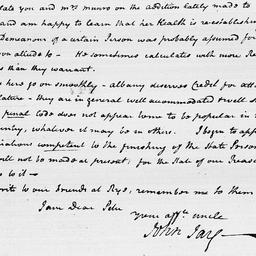 tate you and mrs munro on the addition lately made to
and am happy to learn that her Health is re-establish
Demeanour of a certain Person was probably assumed for
you allude to – He sometimes calculates with more Re
s than they warrant.
s here go on smoothly – albany deserves Credit for att
lature – they are in general well accommodated & well s
penal Code does not appear to be popular in t
untry, whatever it may be in others. I begin to app
riations competent to the finishing of the State Prison
will not be made at present; for the State of our Treas
s to it –
write to our Friends at Rye, remember me to them
I am Dear Peter
your affte. uncle
John Jay